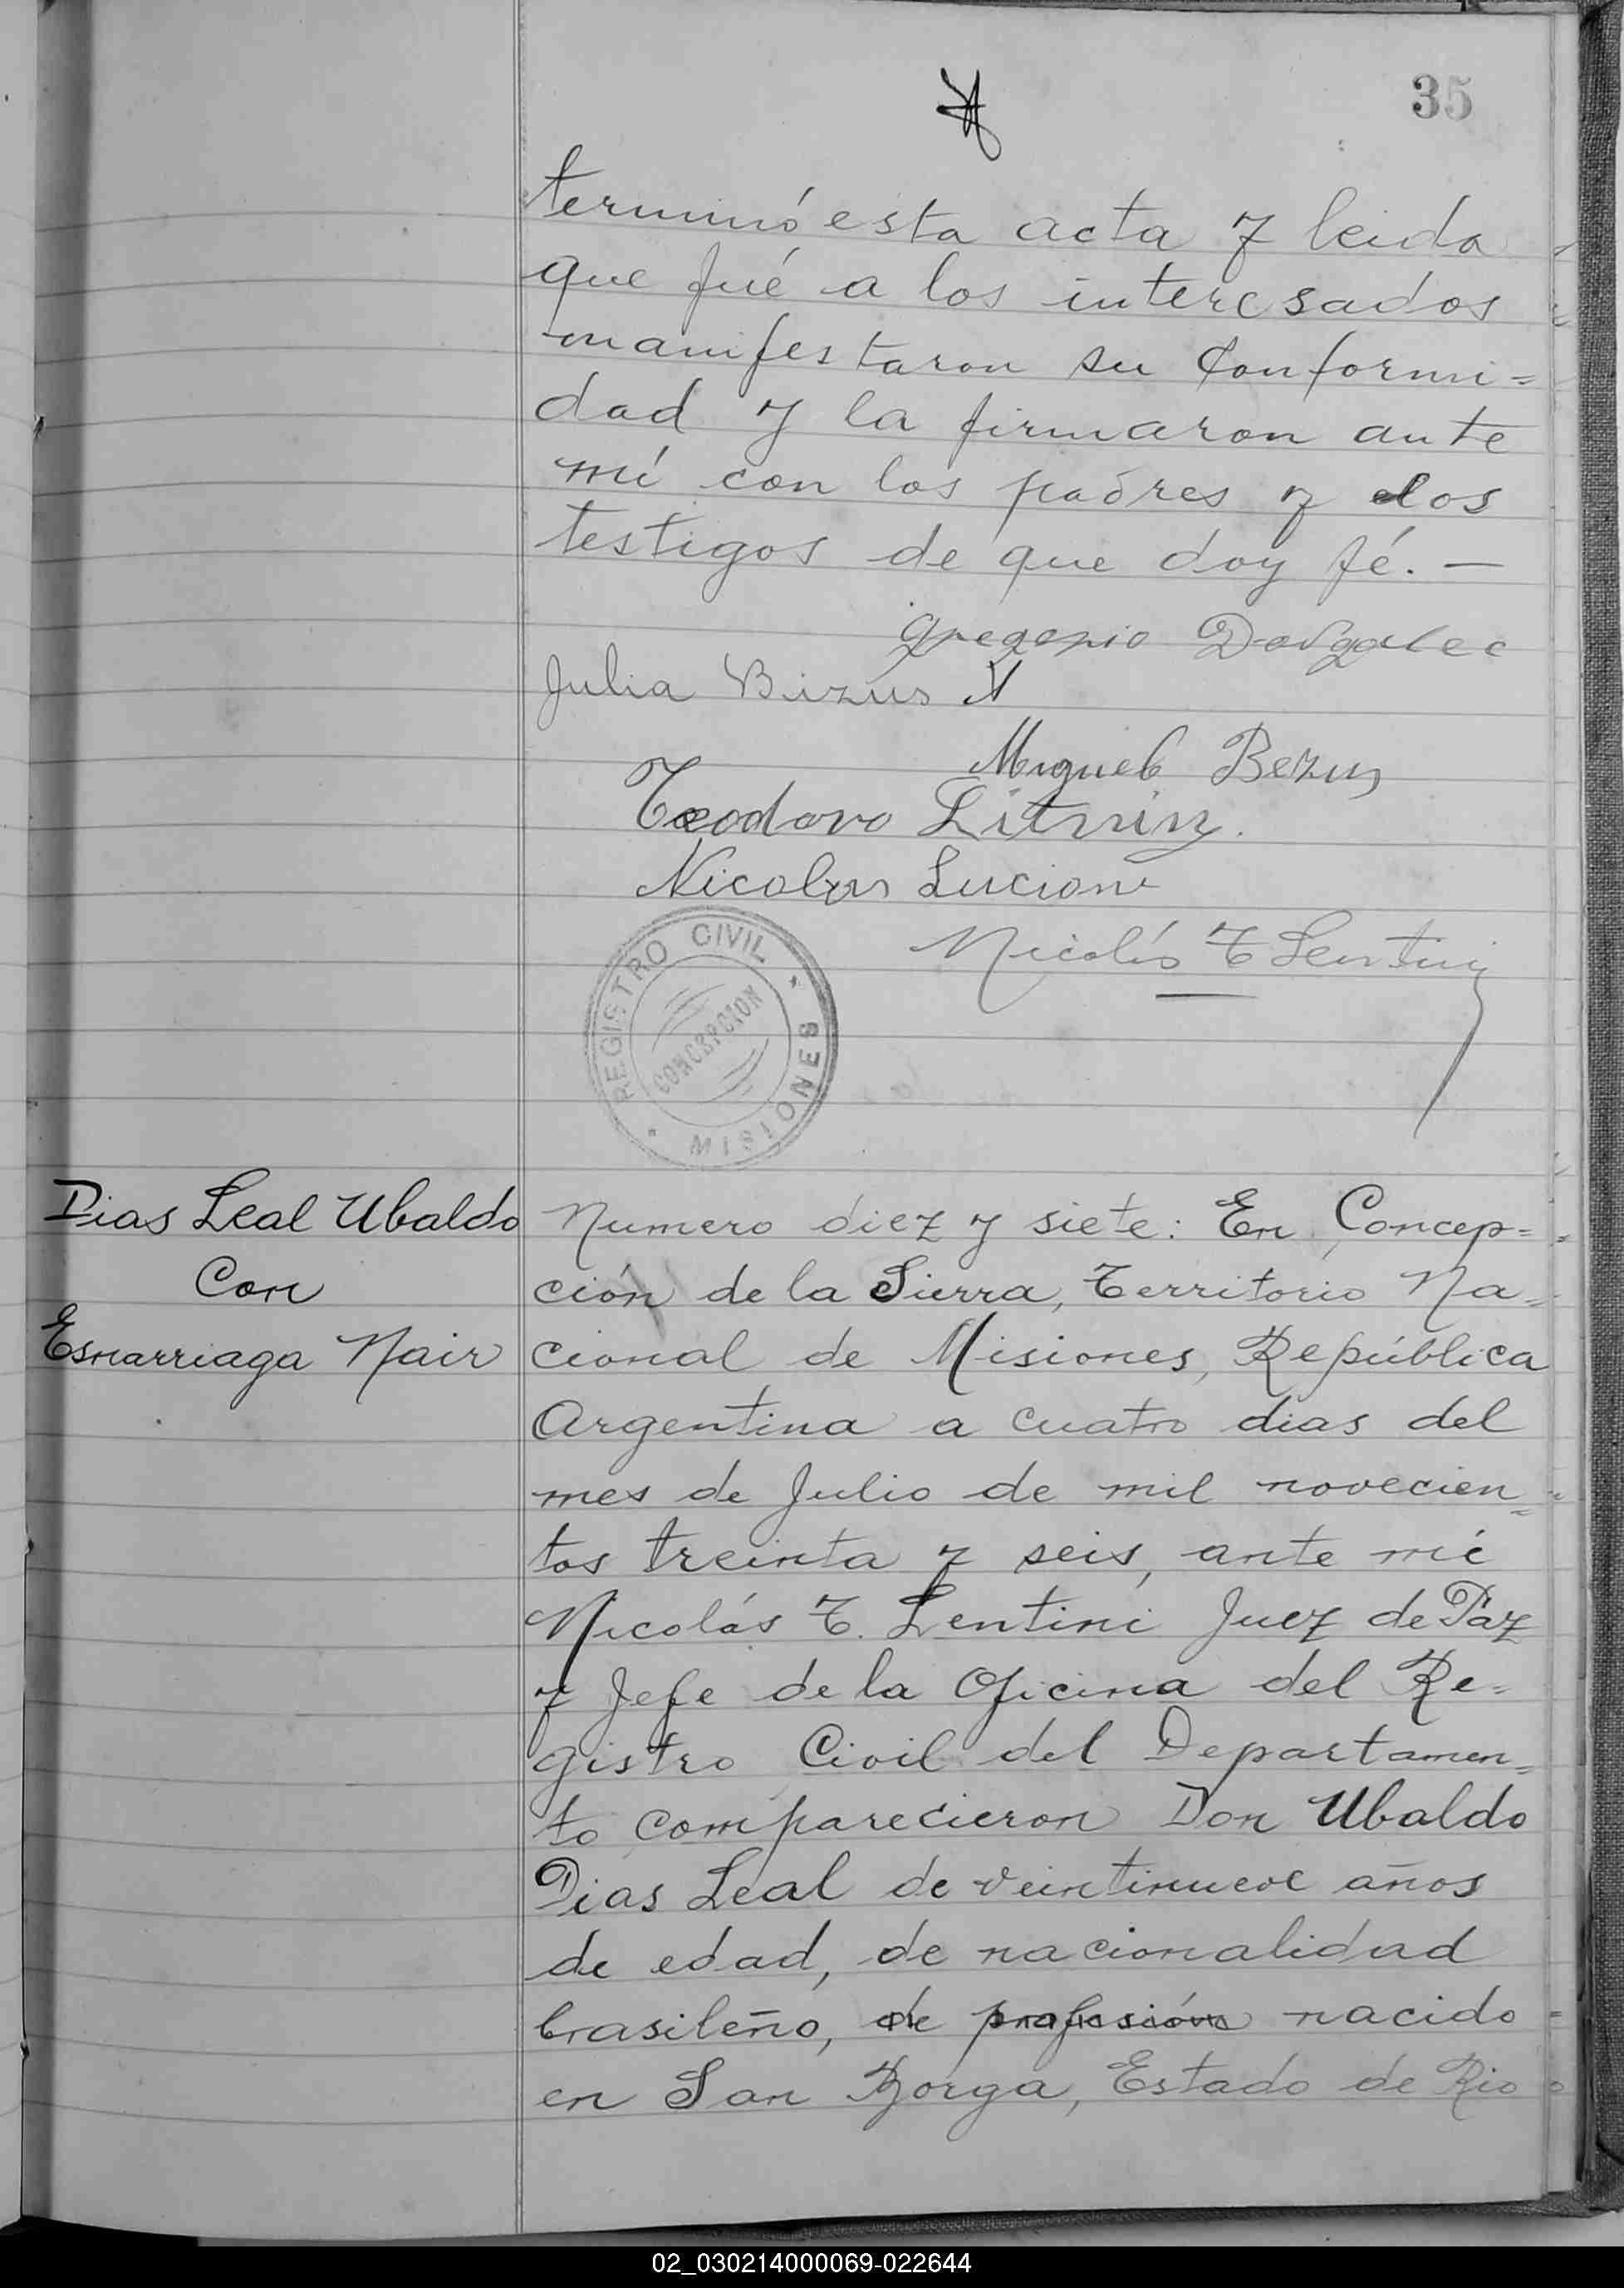 35
terminó esta acta y leida
que fué a los interesados
manifestaron su Conformi=
dad y la firmaron ante
mí con los padres y dos
testigos de que doy fé. —
Gregorio
Julia Bizus
Miguel Bezus
Teodoro Litwin.
Nicolas Lucion
Nicolás T Lentini
REGISTRO CIVIL
CONCEPCION
MISIONES
Dias Leal Ubaldo
Con
Esnarriaga Nair
Numero diez y siete: En Concep=
ción de la Sierra, Territorio Na=
cional de Misiones, República
Argentina a cuatro dias del
mes de Julio de mil novecien=
tos treinta y seis, ante mí
Nicolás T. Lentini Juez de Paz
y Jefe de la Oficina del Re=
gistro Civil del Departamen=
to comparecieron Don Ubaldo
Dias Leal de veintinueve años
de edad, de nacionalidad
brasileño, de profesión nacido
en San Borga, Estado de Rio
02_030214000069-022644